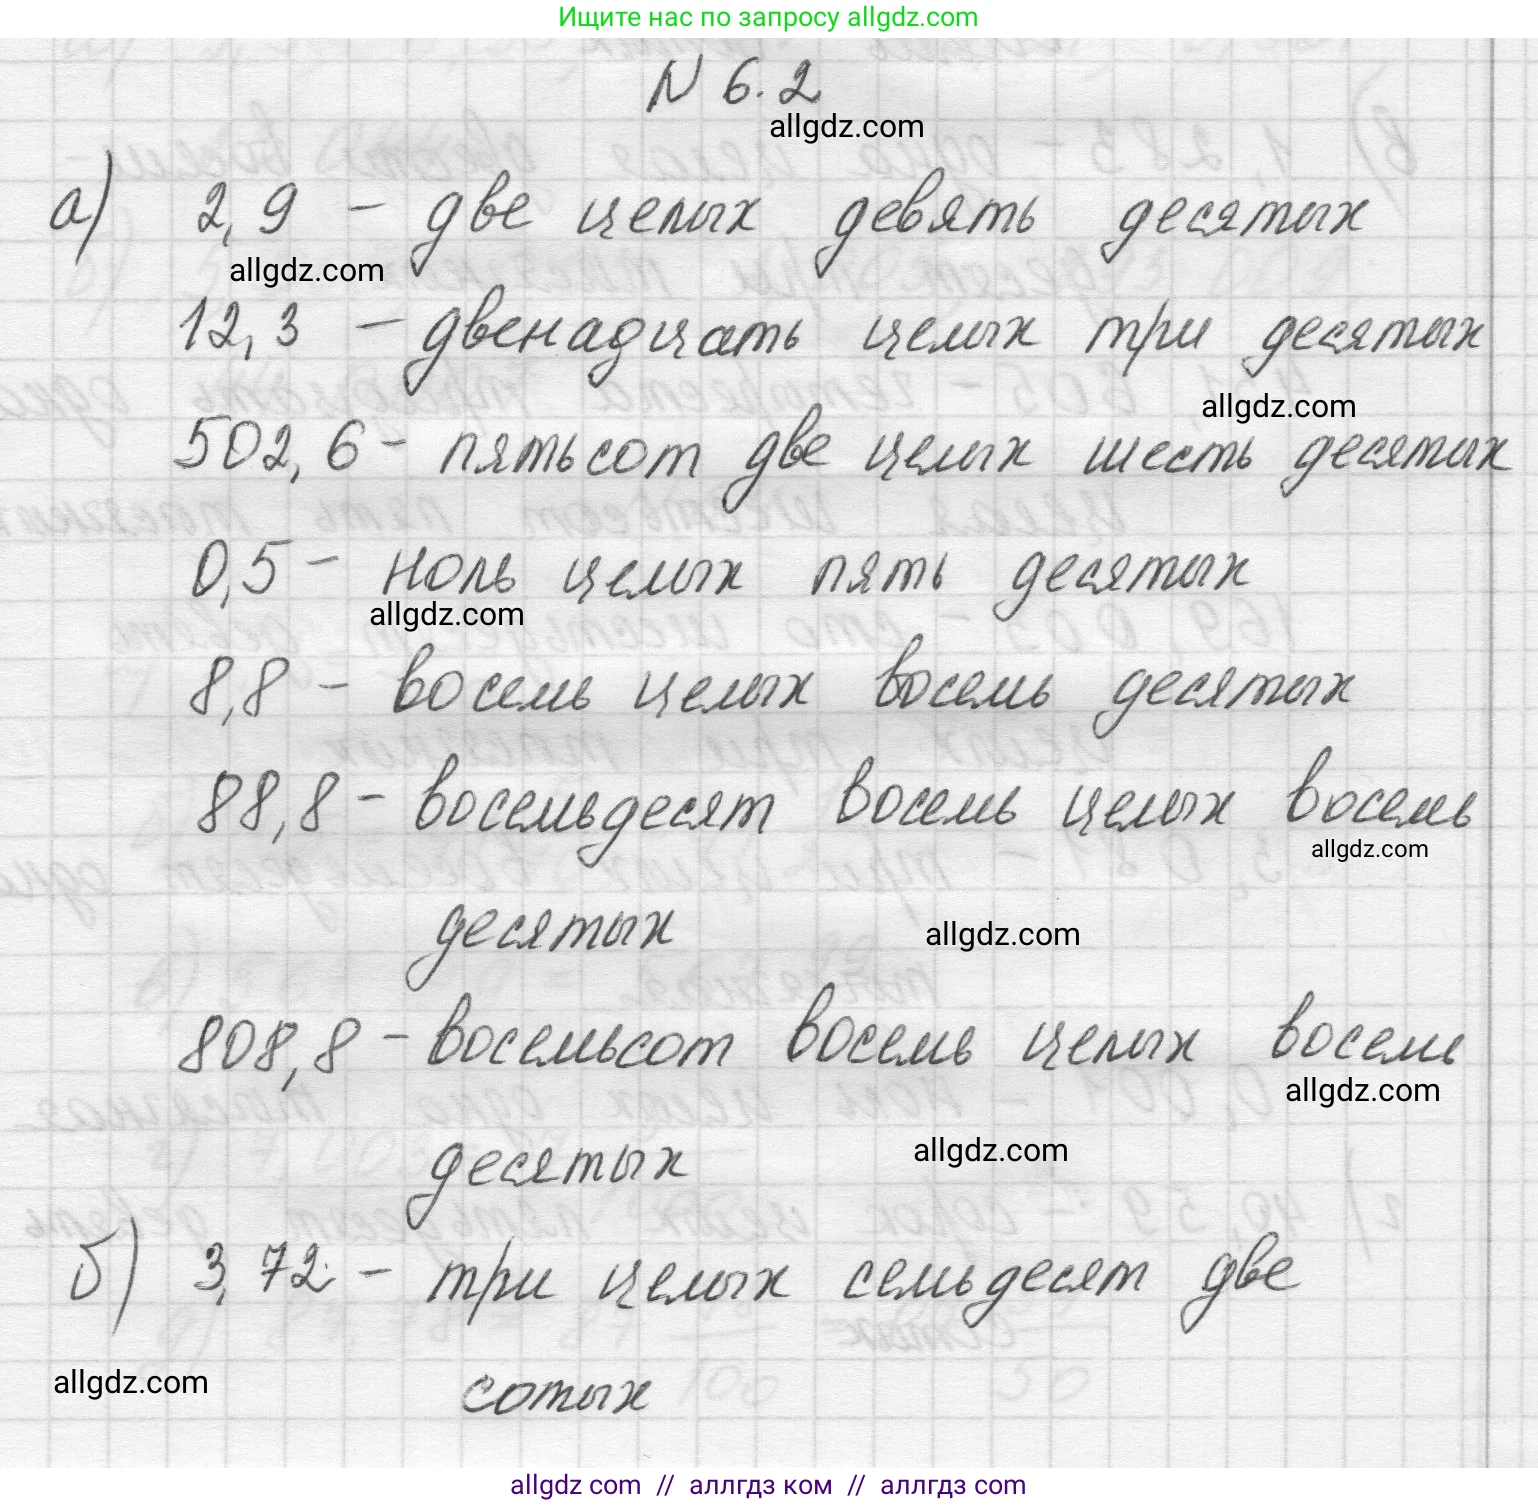 Ищите нас по запросу allgdz.com
N 6.2
allgdz.com
а) 2,9 – две целых девять десятых
allgdz.com
12,3 – двенадцать целых три десятых
allgdz.com
502,6 – пятьсот две целых шесть десятых
0,5 – ноль целых пять десятых
allgdz.com
8,8 – восемь целых восемь десятых
88,8 – восемьдесят восемь целых восемь
allgdz.com
десятых
allgdz.com
808,8 – восемьсот восемь целых восемь
allgdz.com
десятых
allgdz.com
б) 3,72 – три целых семьдесят две
allgdz.com
сотых
allgdz.com // аллгдз ком // аллгдз com